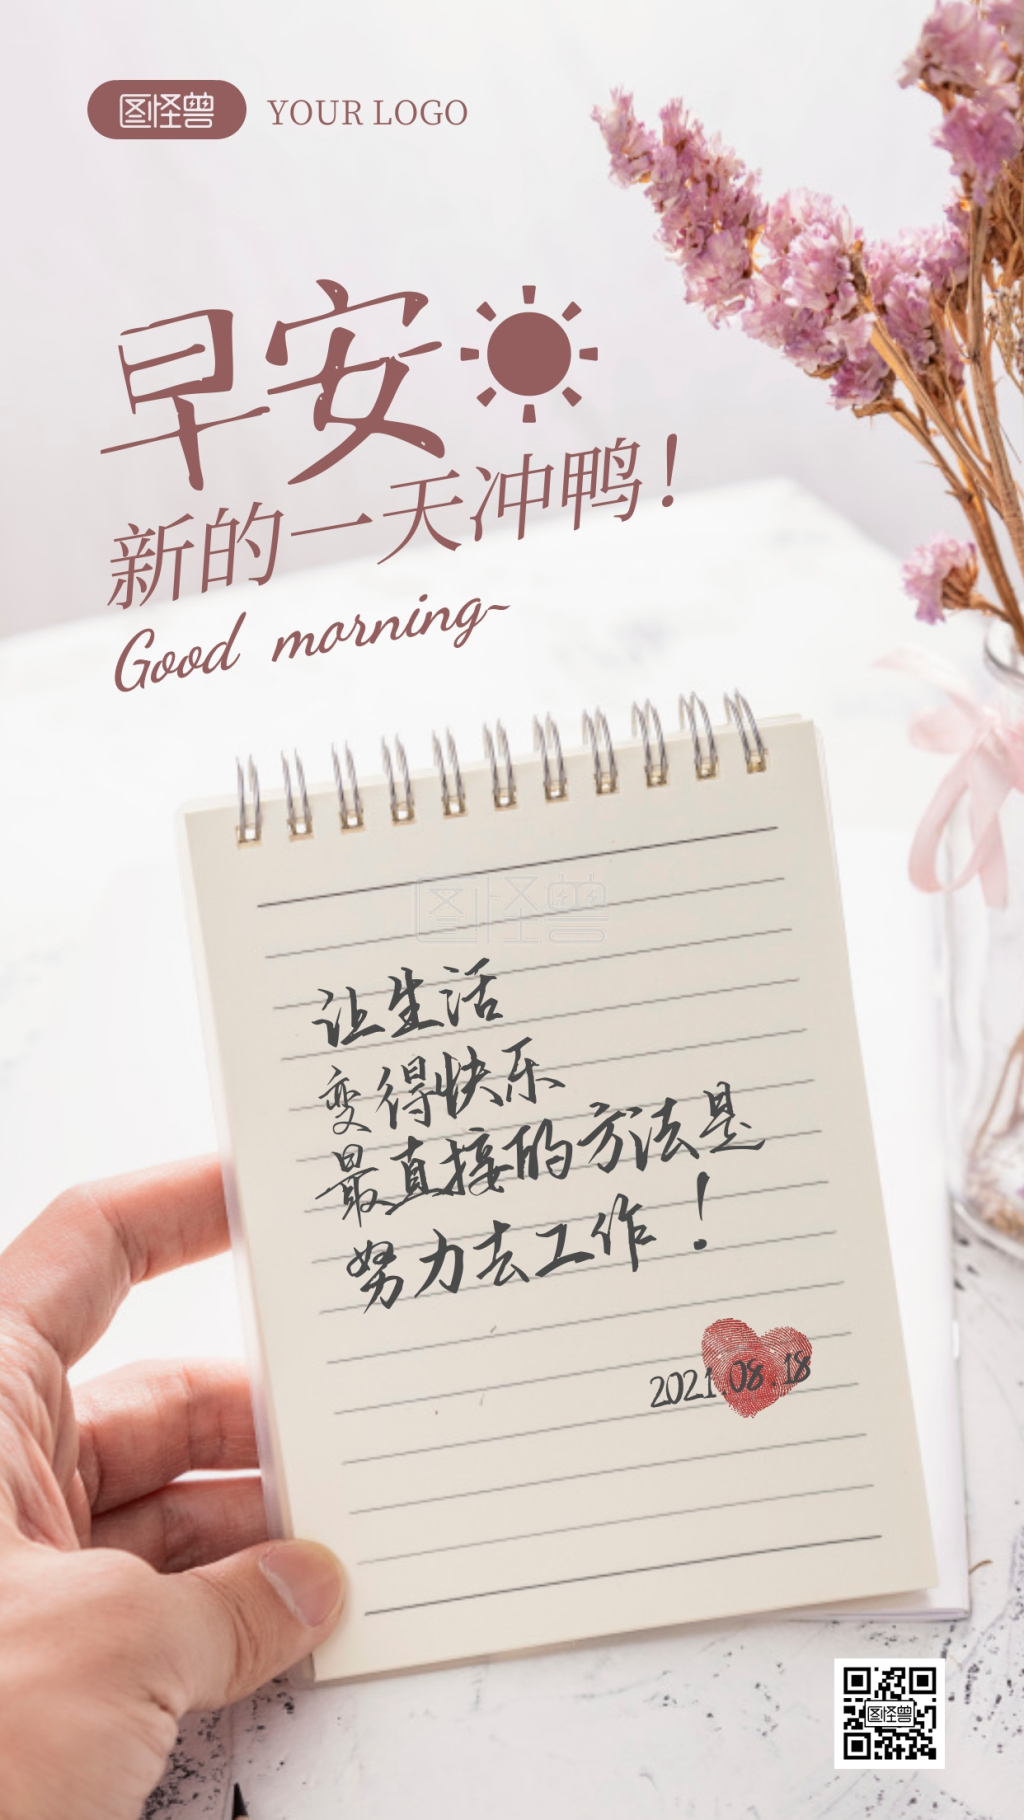 图怪兽 YOUR LOGO
早安
新的一天冲鸭！
Good morning~
图怪兽
让生活
变得快乐
最直接的方法是
努力去工作！
2021.08.18
图怪兽